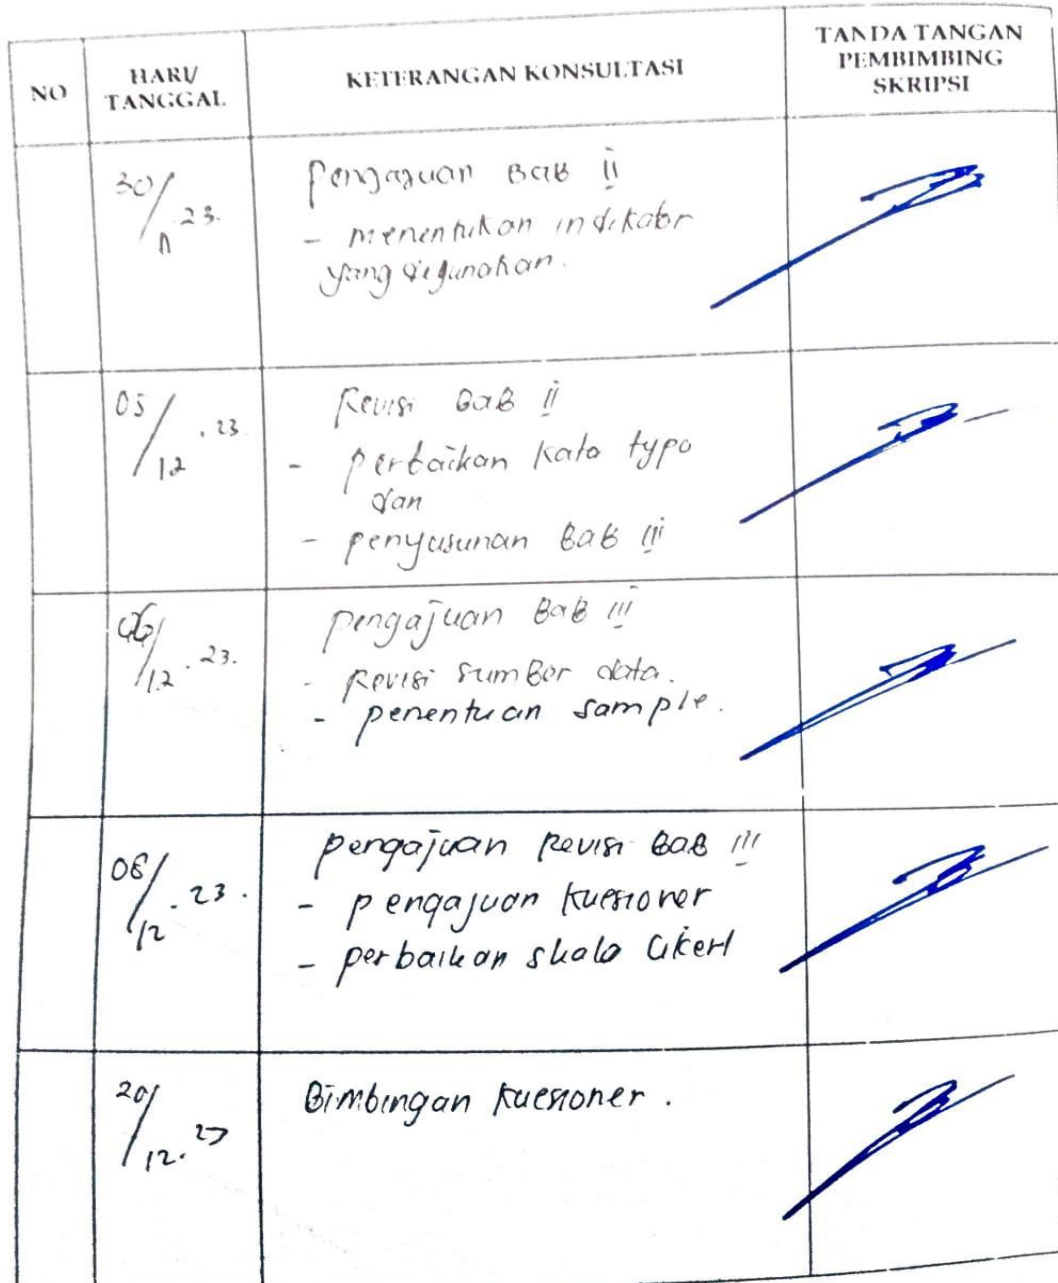 NO
HARI/
TANGGAL
KETERANGAN KONSULTASI
TANDA TANGAN
PEMBIMBING
SKRIPSI
30/11.23.
Pengajuan BAB II
- menentukan indikator
yang digunakan.
05/12.23
Revisi BAB II
- perbaikan kata typo
dan
- penyusunan BAB III
06/12.23.
pengajuan BAB III
- Revisi sumber data.
- penentuan sample.
08/12.23.
pengajuan Revisi BAB III
- pengajuan kuesioner
- perbaikan skala likert
20/12.23
Bimbingan kuesioner.